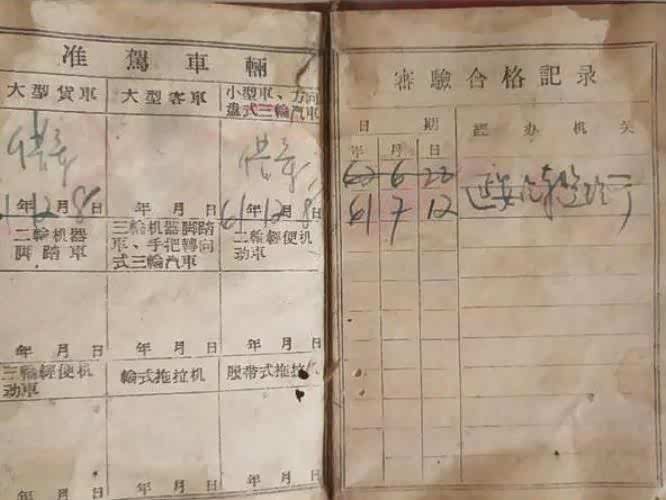 准駕車輛
大型貨車 大型客車 小型車、方向
盘式三輪汽車
12月8日 61年12月8日
二輪机器 三輪机器脚踏 二輪輕便机
脚踏車 車、手把轉向 动車
式三輪汽車
年 月 日 年 月 日 年 月 日
三輪輕便机 輪式拖拉机 履带式拖拉机
动車
年 月 日 年 月 日 年 月 日
審驗合格記录
日期 經办机关
年 月 日
62 6 22
61 7 12